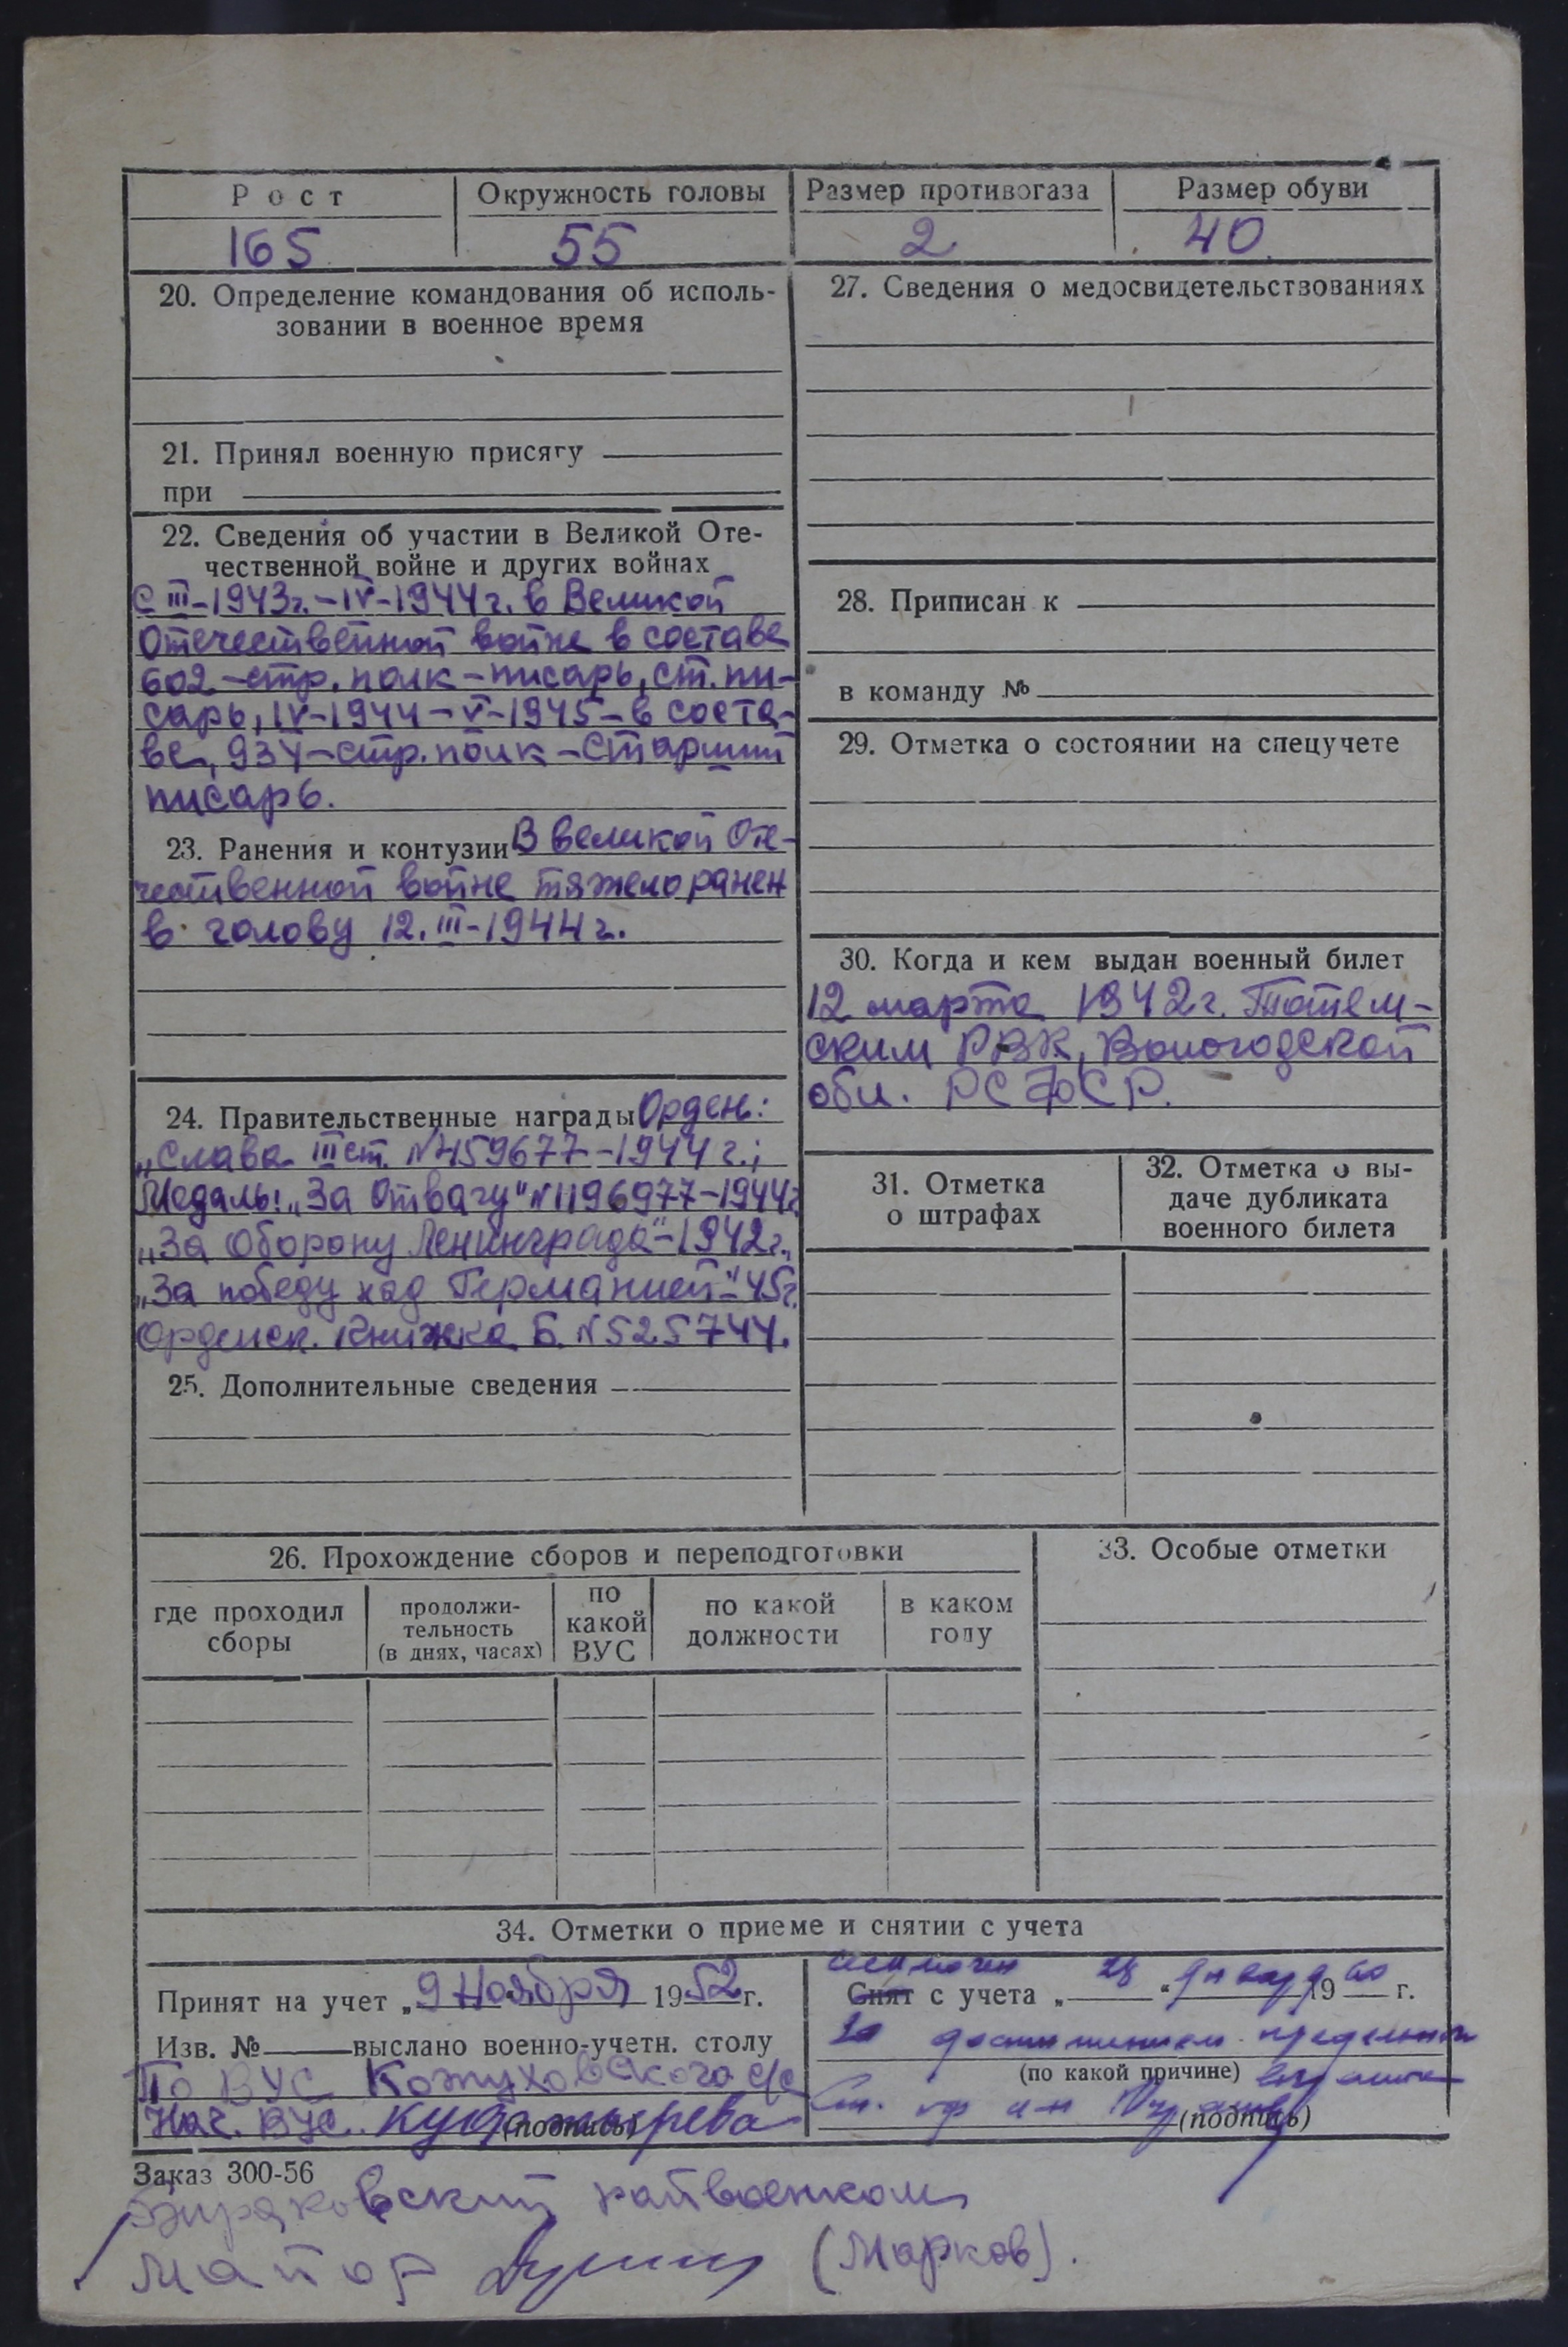 Рост Окружность головы Размер противогаза Размер обуви
165 55 2 40
20. Определение командования об исполь-
зовании в военное время
21. Принял военную присягу
при
22. Сведения об участии в Великой Оте-
чественной войне и других войнах
С III-1943г.-IV-1944г. в Великой
Отечественной войне в составе
602-стр. полк-писарь, ст. пи-
сарь, IV-1944-V-1945-в соста-
ве, 934-стр. полк-старший
писарь.
23. Ранения и контузии В Великой Оте-
чественной войне тяжело ранен
в голову 12.III-1944г.
24. Правительственные награды Орден:
„Слава III ст. №459677-1944г.;
Медаль: „За Отвагу" №1196977-1944г
„За оборону Ленинграда"-1942г.,
„За победу над Германией"-45г.
Орденск. книжка Б. №525744.
25. Дополнительные сведения
26. Прохождение сборов и переподготовки
где проходил сборы
продолжи-
тельность
(в днях, часах)
по какой ВУС
по какой должности
в каком году
27. Сведения о медосвидетельствованиях
28. Приписан к
в команду №
29. Отметка о состоянии на спецучете
30. Когда и кем выдан военный билет
12 марта 1942г. Тотем-
ским РВК, Вологодской
обл. РСФСР.
31. Отметка
о штрафах
32. Отметка о вы-
даче дубликата
военного билета
33. Особые отметки
34. Отметки о приеме и снятии с учета
Принят на учет „9 Ноября 1952г.
Изв. № выслано военно-учетн. столу
По ВУС Кожуховского с/с
Нач. ВУС.
(подпись)
исключен
Снят с учета „28 " января 1960 г.
за достижением предельного
(по какой причине) возраста
(подпись)
Заказ 300-56
Биряковский райвоенком
майор (Марков).